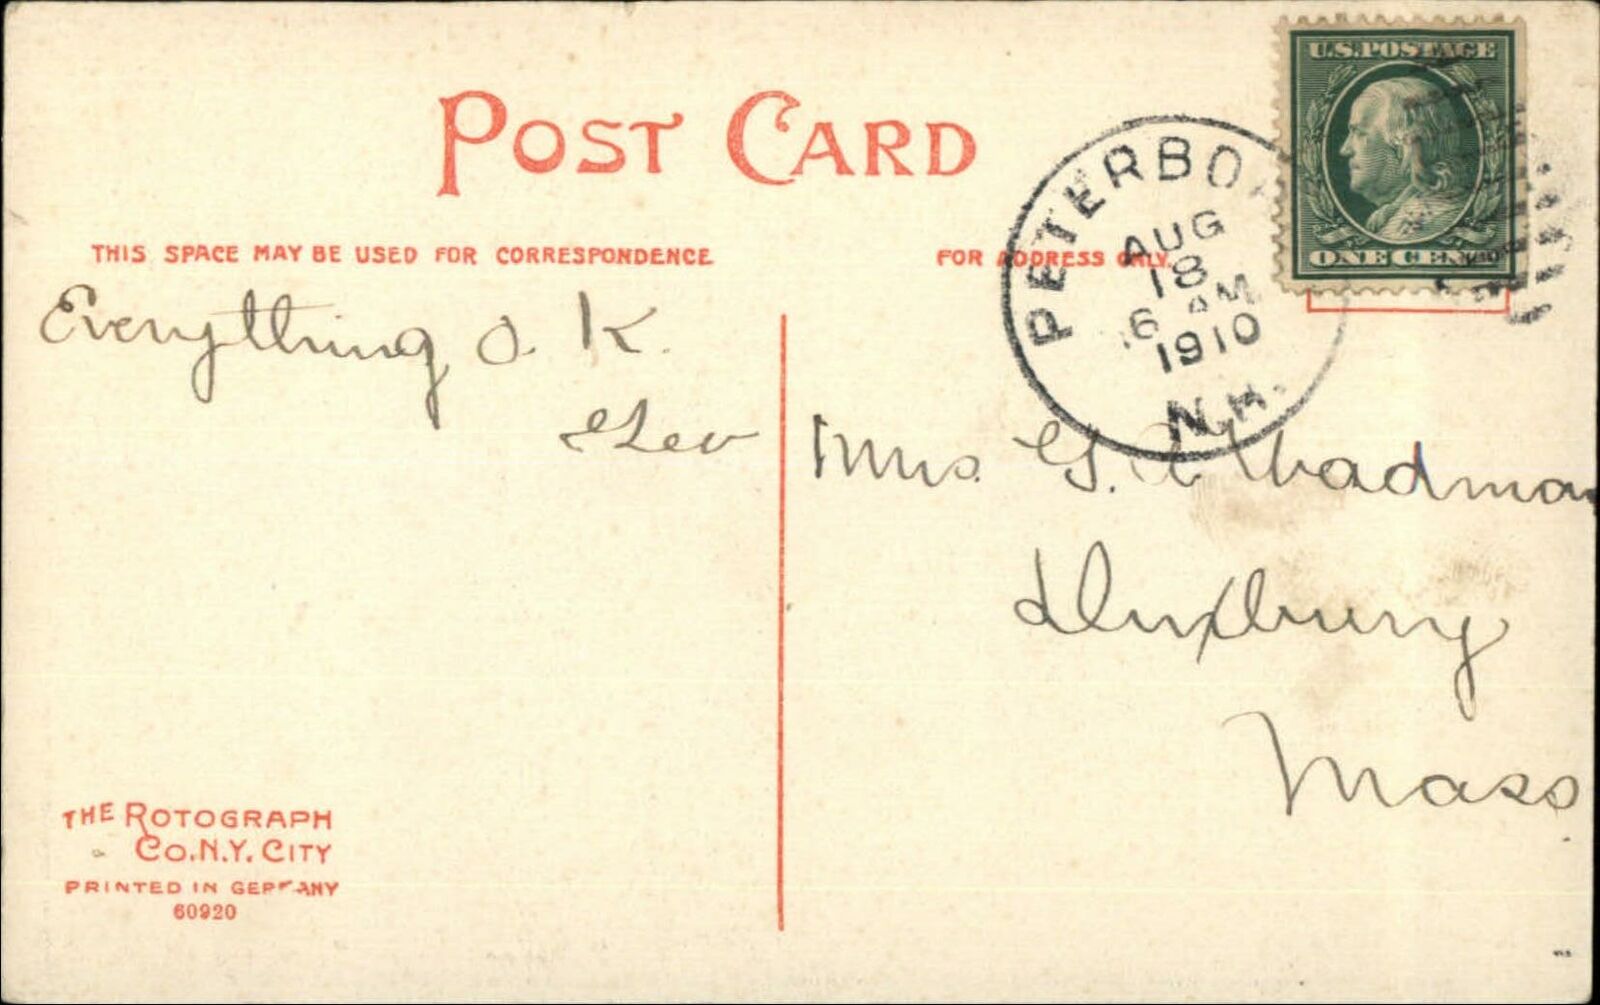 POST CARD
THIS SPACE MAY BE USED FOR CORRESPONDENCE
FOR ADDRESS ONLY
U.S. POSTAGE
ONE CENT
PETERBO
AUG
18
6 AM
1910
N.H.
Everything O.K.
Mrs. G. A. Wadman
Duxbury
Mass
THE ROTOGRAPH
CO. N.Y. CITY
PRINTED IN GERMANY
60920